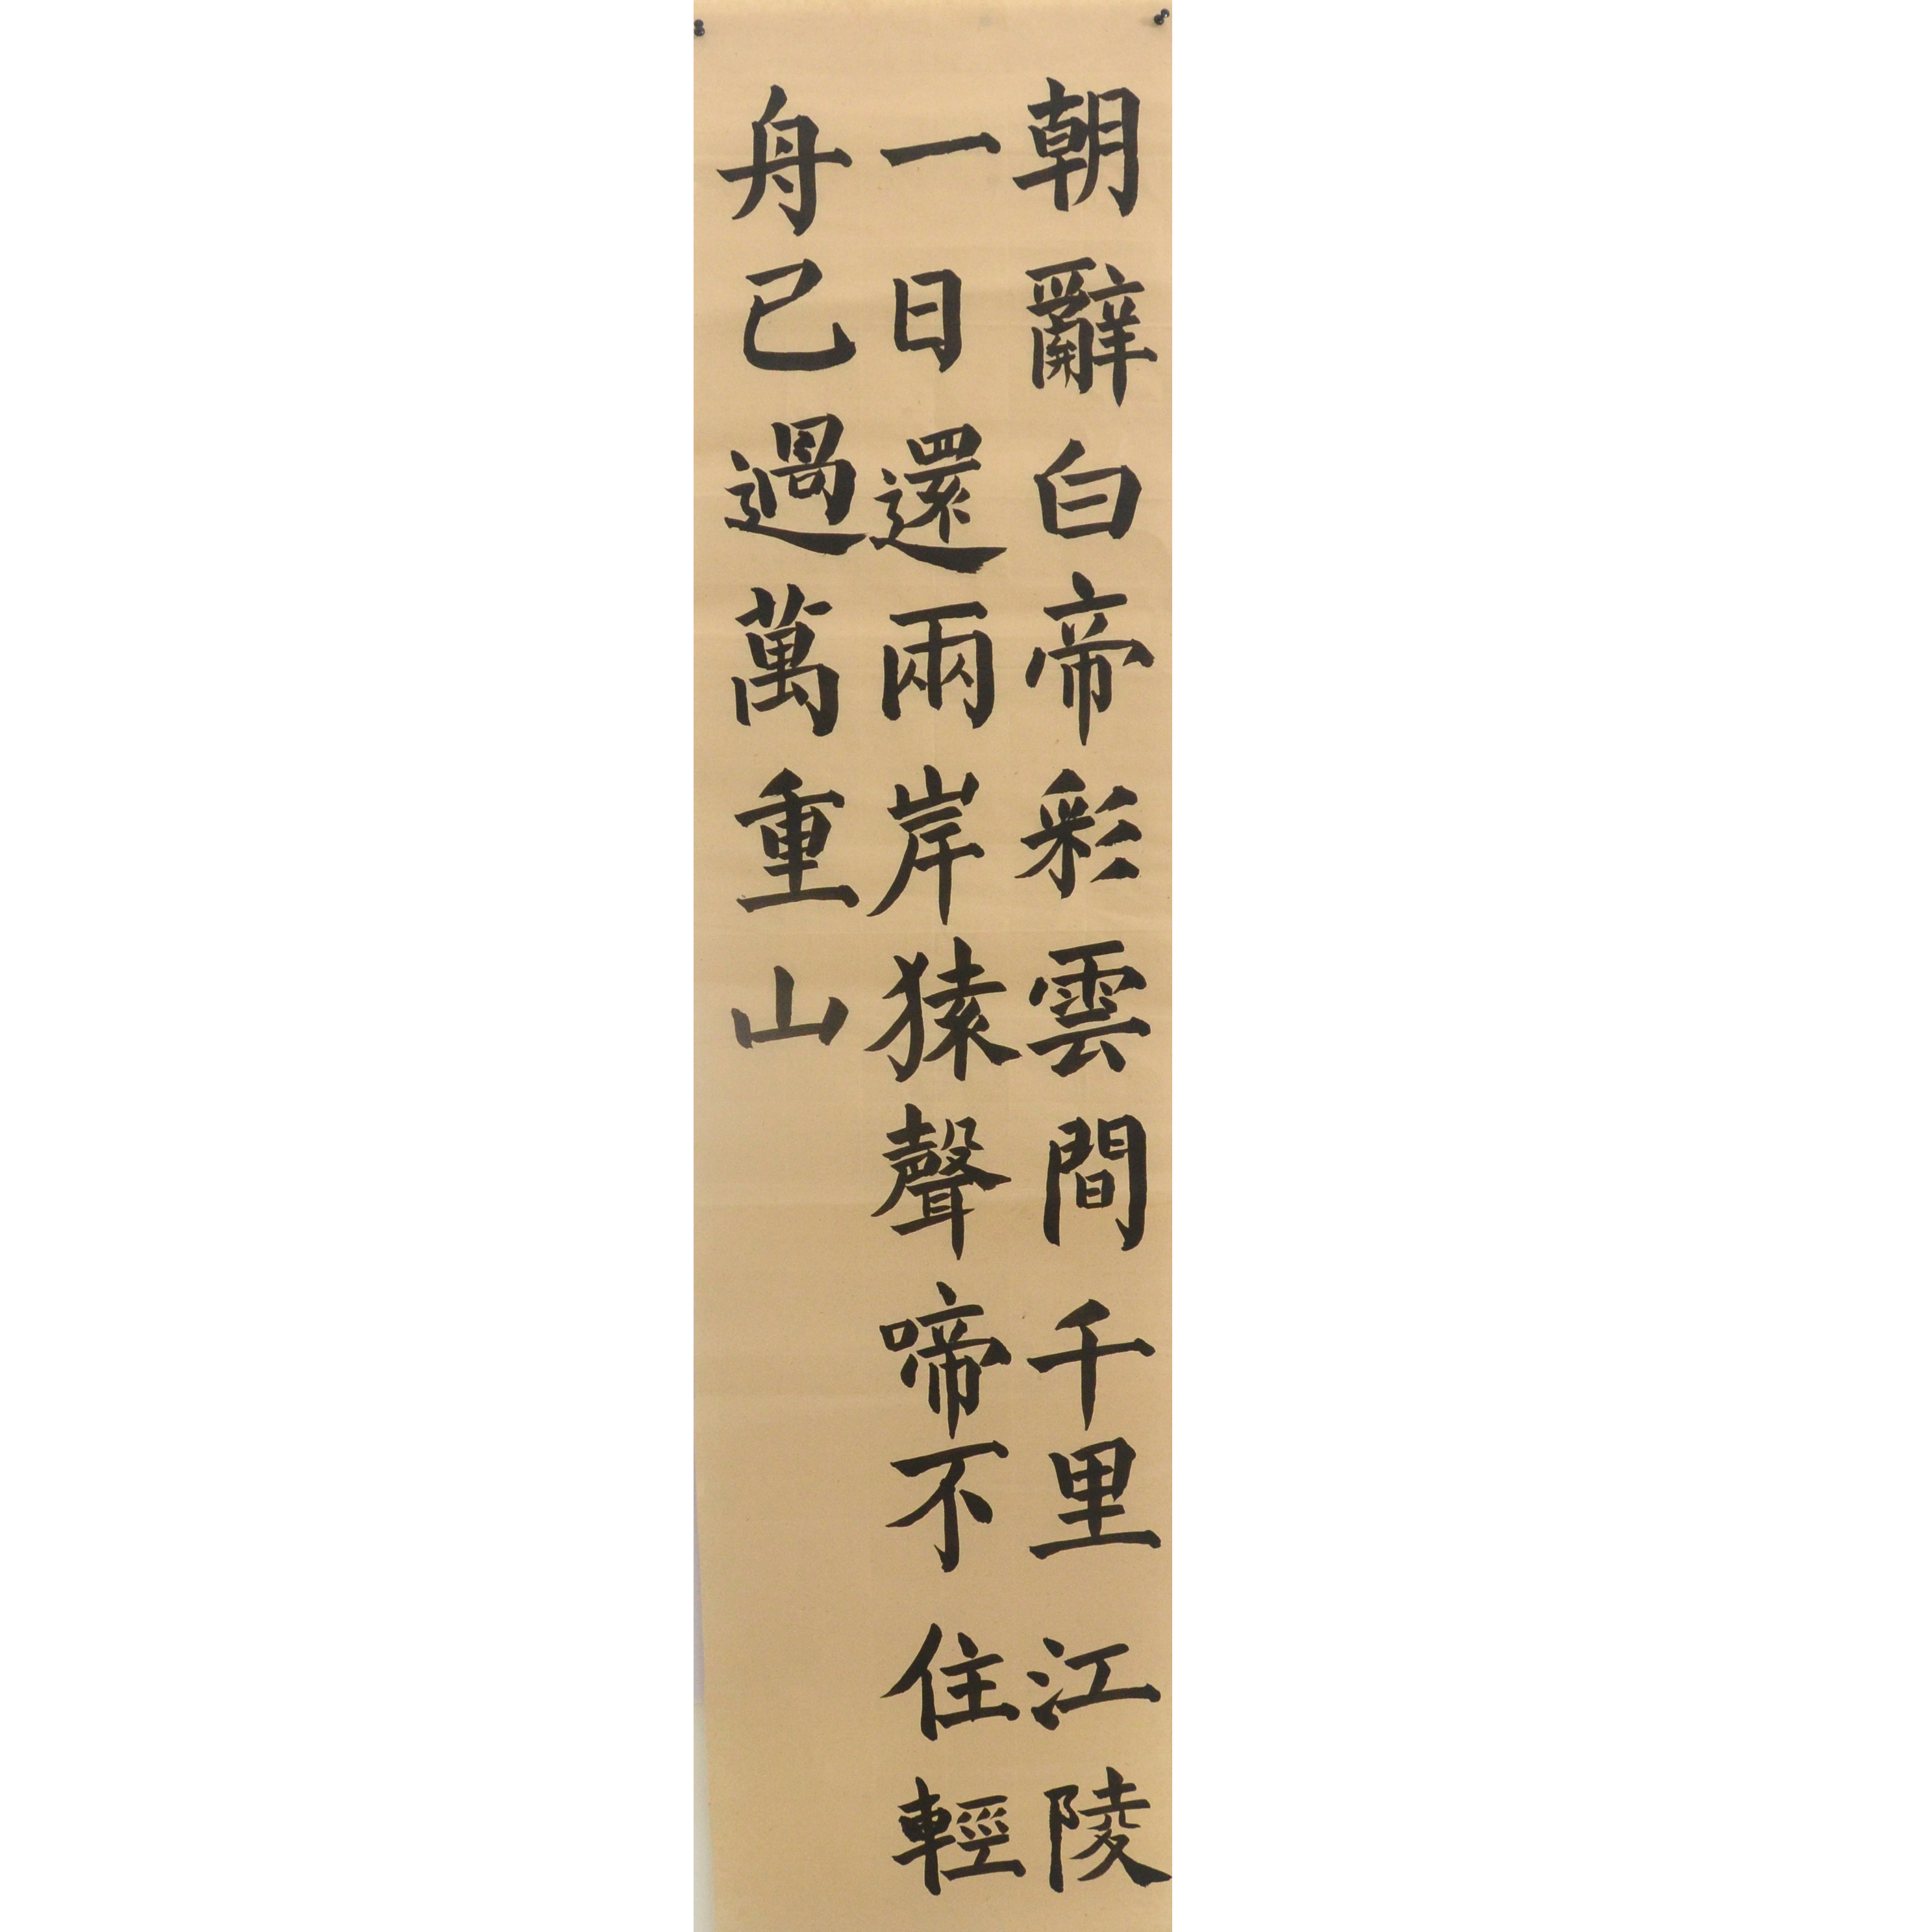 朝辭白帝彩雲間千里江陵
一日還兩岸猿聲啼不住輕
舟已過萬重山